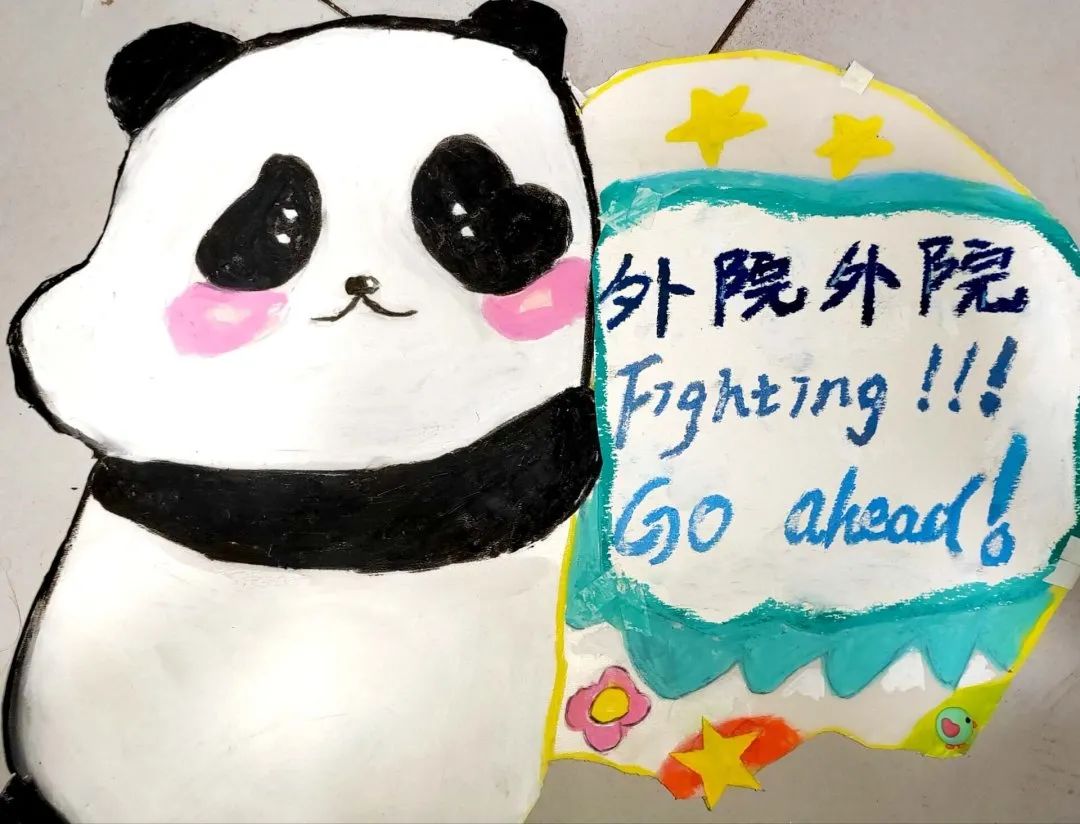 外院外院
Fighting!!!
Go ahead!